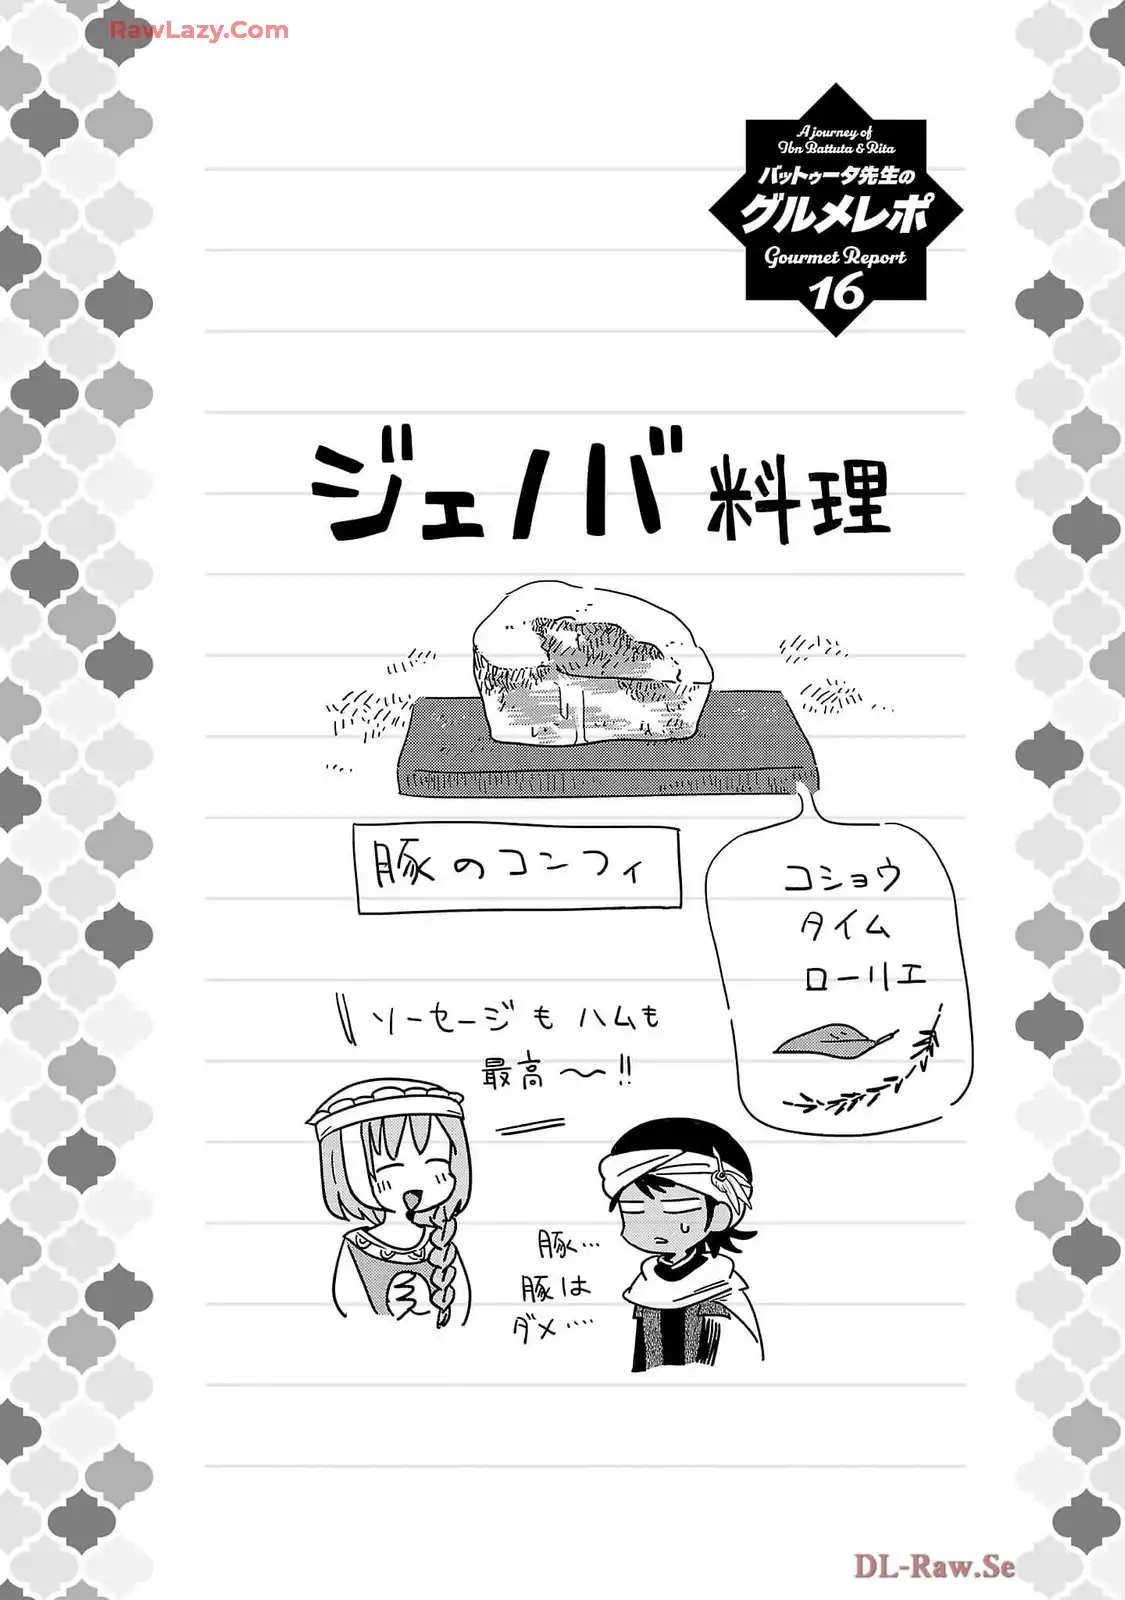 RawLazy.Com
A journey of
Ibn Battuta & Rita
バットゥータ先生の
グルメレポ
Gourmet Report
16
ジェノバ料理
豚のコンフィ
コショウ
タイム
ローリエ
ソーセージもハムも
最高〜!!
豚…
豚は
ダメ…
DL-Raw.Se